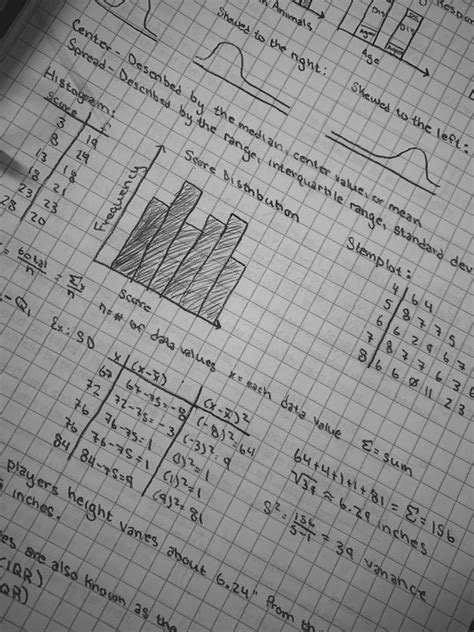 in Animals
Age
Skewed to the right:
Skewed to the left:
Center - Described by the median, center value, or mean
Spread - Described by the range, interquartile range, standard dev
Histogram:
Score
3 | 19
8 | 24
13 | 18
18 | 21
23 | 23
28 | 20
Score Distribution
Frequency
Score
Stemplot:
4 | 6 4
5 | 8 7 7 5
6 | 6 2 9 6 7
7 | 8 7 7 6 3 6
8 | 6 6 0 11 2 3
total/n = Σx/n
n = # of data values x = each data value Σ = sum
Q₁ Ex: SD
x | (x-x̄) | (x-x̄)²
67 | 67-75=-8 | (-8)²=64
72 | 72-75=-3 | (-3)²=9
76 | 76-75=1 | (1)²=1
76 | 76-75=1 | (1)²=1
84 | 84-75=9 | (9)²=81
64+4+1+1+81 = Σ = 156
√39 ≈ 6.24 inches
S² = 156/5-1 = 39 variance
players height varies about 6.24" from the
inches.
es are also known as the
(IQR)
QR)